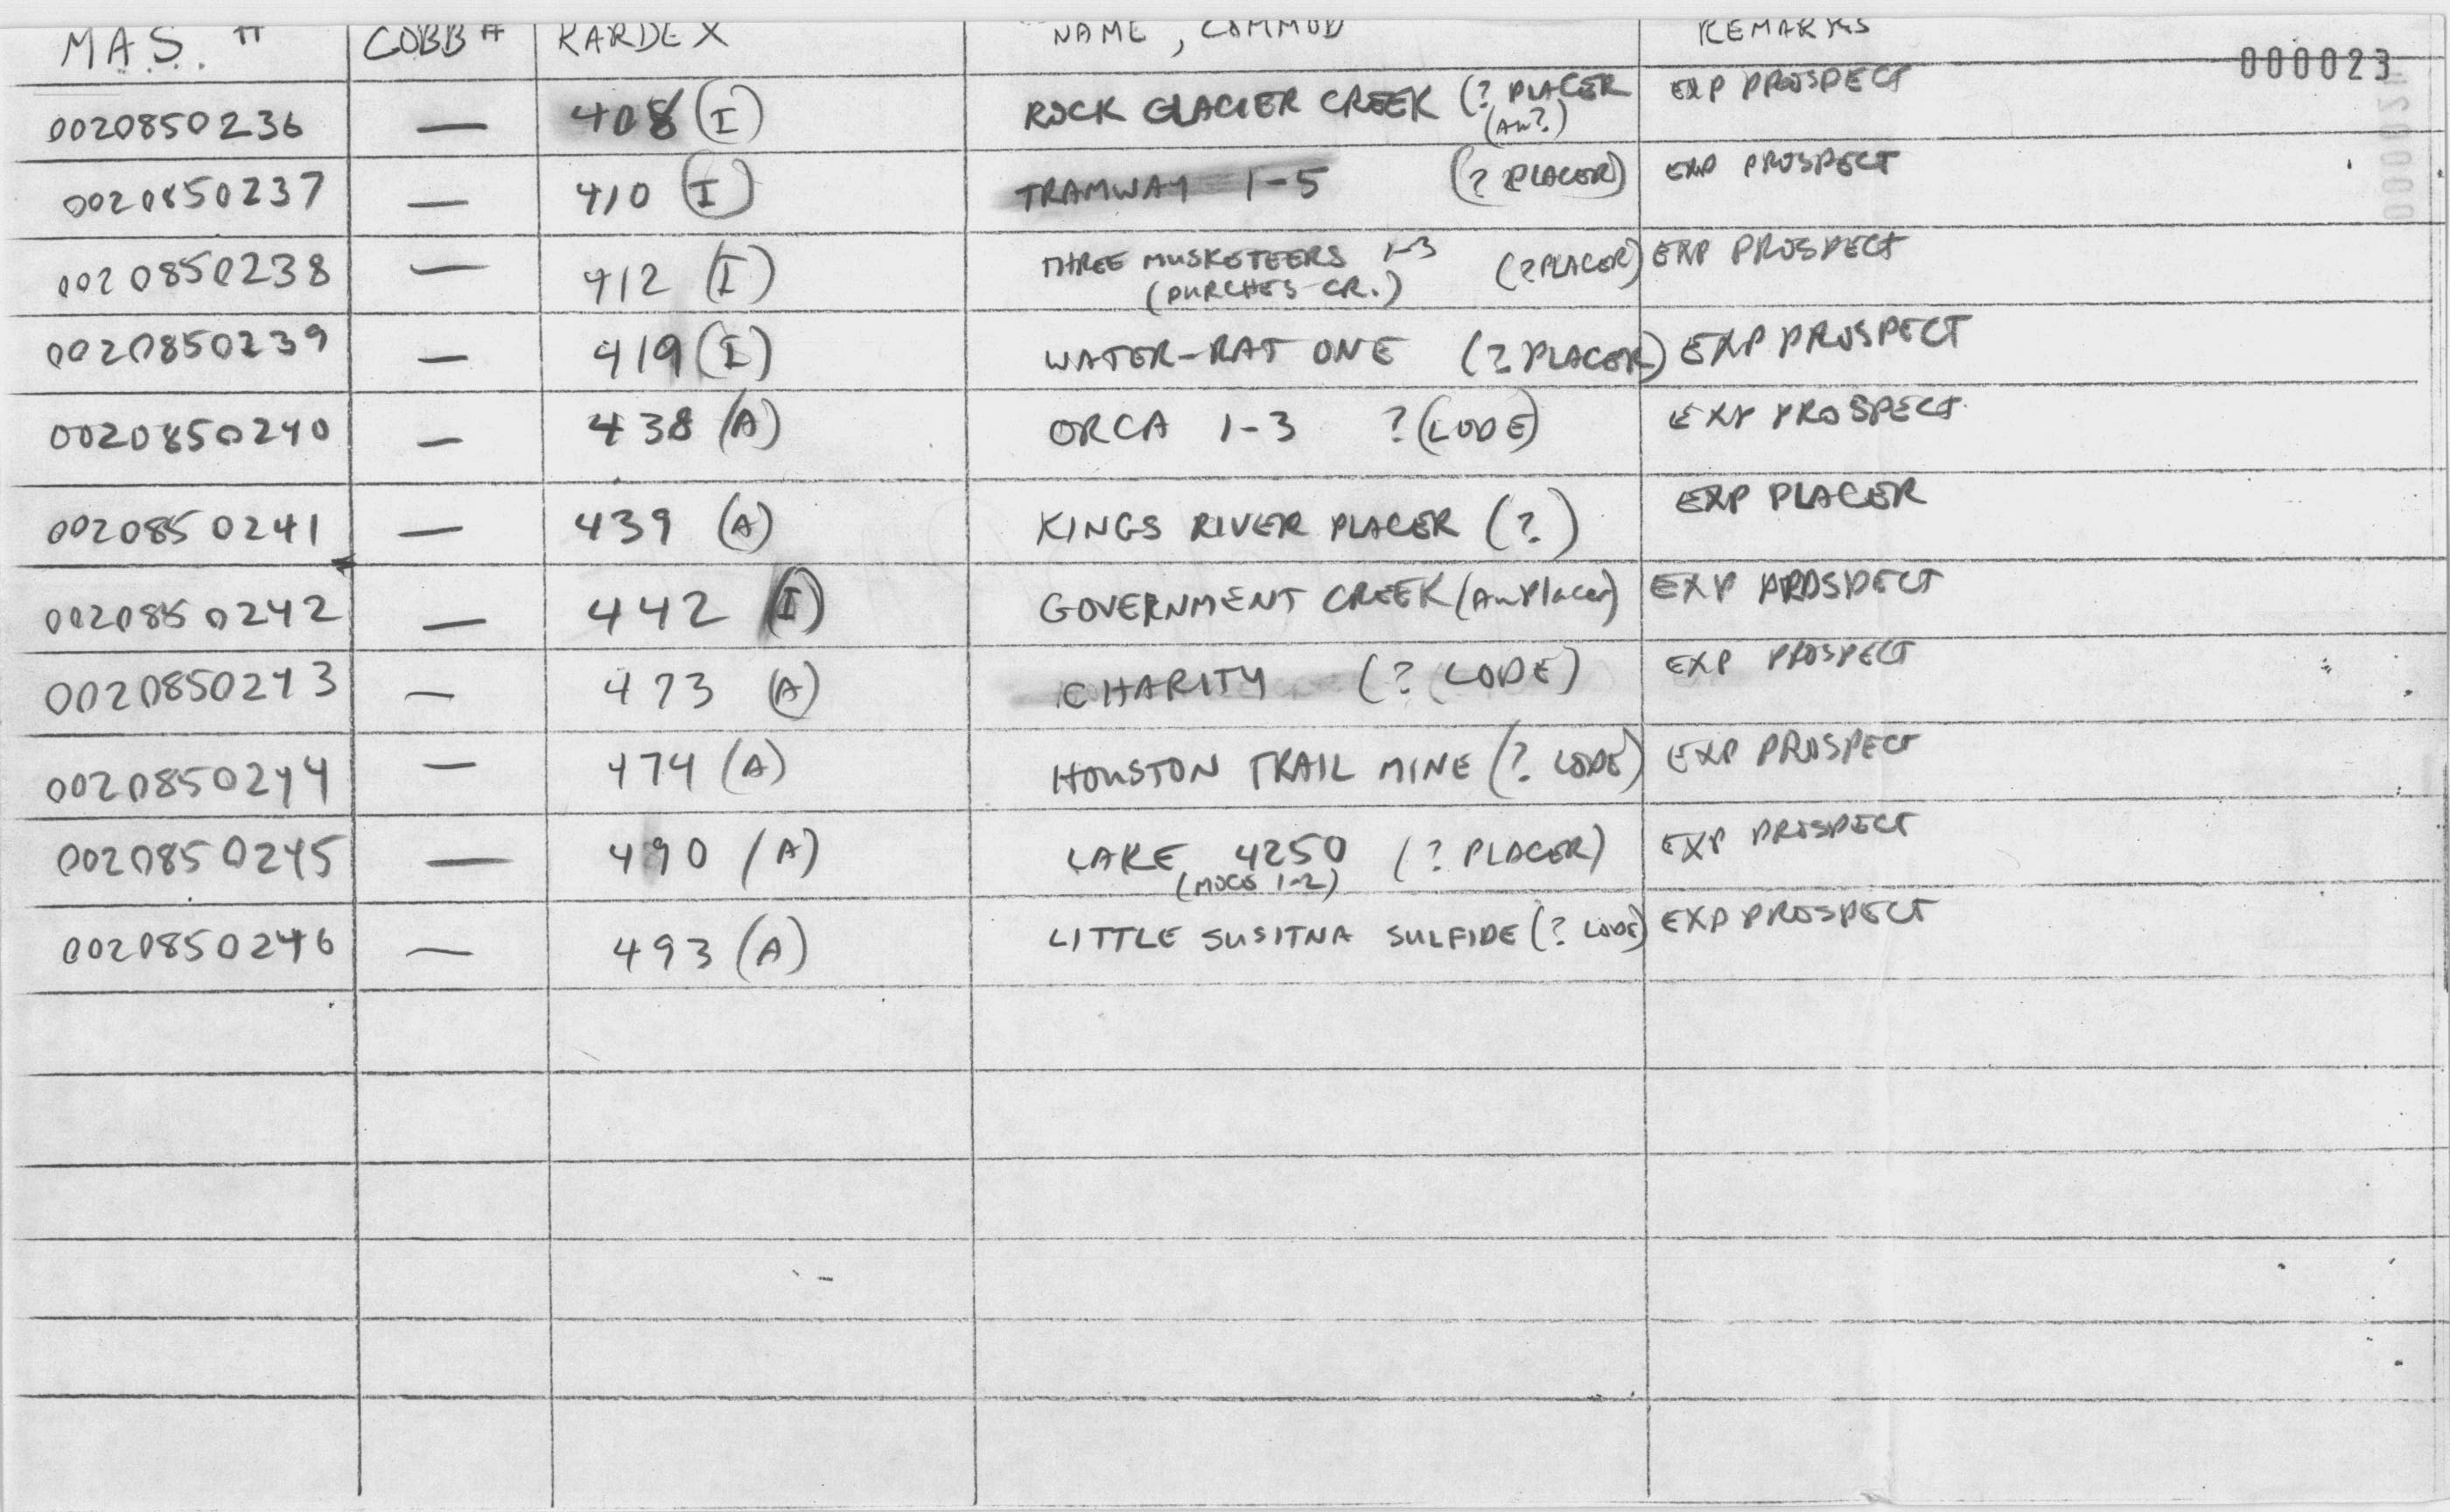 M.A.S. # COBB # KARDEX NAME, COMMOD REMARKS
000023
0020850236 — 408 (I) ROCK GLACIER CREEK (? PLACER EXP PROSPECT
(Au?)
0020850237 — 410 (I) TRAMWAY 1-5 (? PLACER) EXP PROSPECT
0020850238 — 412 (I) THREE MUSKETEERS 1-3 (? PLACER) EXP PROSPECT
(PURCHES CR.)
0020850239 — 419 (I) WATER-RAT ONE (? PLACER) EXP PROSPECT
0020850240 — 438 (A) ORCA 1-3 ? (LODE) EXP PROSPECT
0020850241 — 439 (A) KINGS RIVER PLACER (?) EXP PLACER
0020850242 — 442 (I) GOVERNMENT CREEK (Au Placer) EXP PROSPECT
0020850243 — 473 (A) CHARITY (? LODE) EXP PROSPECT
0020850244 — 474 (A) HOUSTON TRAIL MINE (? LODE) EXP PROSPECT
0020850245 — 490 (A) LAKE 4250 (? PLACER) EXP PROSPECT
1-2)
0020850246 — 493 (A) LITTLE SUSITNA SULFIDE (? LODE) EXP PROSPECT